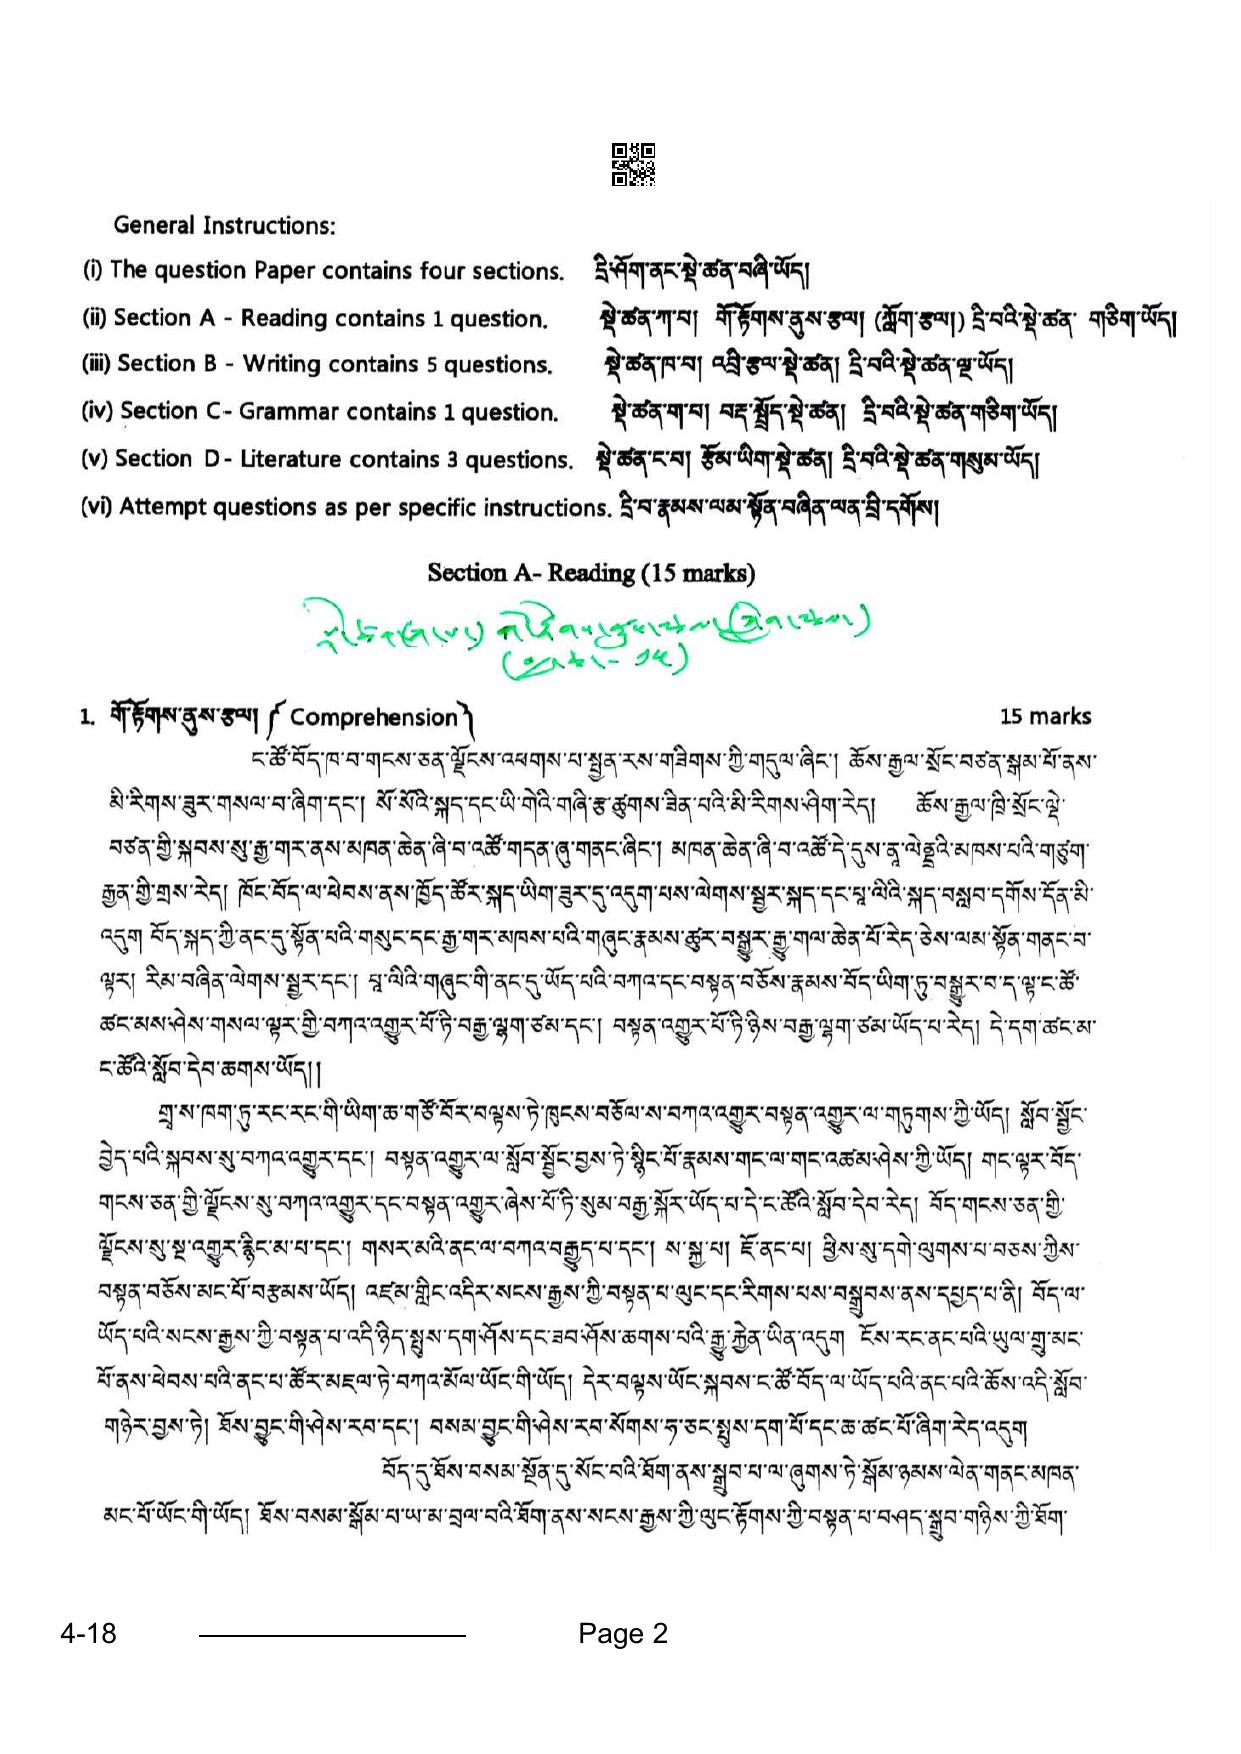 General Instructions:
(i) The question Paper contains four sections. དྲི་ཤོག་ནང་སྡེ་ཚན་བཞི་ཡོད།
(ii) Section A - Reading contains 1 question. སྡེ་ཚན་ཀ་བ། གོ་རྟོགས་ནུས་རྩལ། (ཀློག་རྩལ།) དྲི་བའི་སྡེ་ཚན་ གཅིག་ཡོད།
(iii) Section B - Writing contains 5 questions. སྡེ་ཚན་ཁ་བ། འབྲི་རྩལ་སྡེ་ཚན། དྲི་བའི་སྡེ་ཚན་ལྔ་ཡོད།
(iv) Section C- Grammar contains 1 question. སྡེ་ཚན་ག་བ། བརྡ་སྤྲོད་སྡེ་ཚན། དྲི་བའི་སྡེ་ཚན་གཅིག་ཡོད།
(v) Section D- Literature contains 3 questions. སྡེ་ཚན་ང་བ། རྩོམ་ཡིག་སྡེ་ཚན། དྲི་བའི་སྡེ་ཚན་གསུམ་ཡོད།
(vi) Attempt questions as per specific instructions. དྲི་བ་རྣམས་ལམ་སྟོན་བཞིན་ལན་བྲི་དགོས།
Section A- Reading (15 marks)
1. གོ་རྟོགས་ནུས་རྩལ། ( Comprehension ) 15 marks
ང་ཚོ་བོད་ཁ་བ་གངས་ཅན་ལྗོངས་འཕགས་པ་སྤྱན་རས་གཟིགས་ཀྱི་གདུལ་ཞིང་། ཆོས་རྒྱལ་སྲོང་བཙན་སྒམ་པོ་ནས་
མི་རིགས་ཟུར་གསལ་བ་ཞིག་དང་། སོ་སོའི་སྐད་དང་ཡི་གེའི་གཞི་རྩ་ཚུགས་ཟིན་པའི་མི་རིགས་ཤིག་རེད། ཆོས་རྒྱལ་ཁྲི་སྲོང་ལྡེ་
བཙན་གྱི་སྐབས་སུ་རྒྱ་གར་ནས་མཁན་ཆེན་ཞི་བ་འཚོ་གདན་ཞུ་གནང་ཞིང་། མཁན་ཆེན་ཞི་བ་འཚོ་དེ་དུས་ནཱ་ལེནྡྲའི་མཁས་པའི་གཙུག་
རྒྱན་གྱི་གྲས་རེད། ཁོང་བོད་ལ་ཕེབས་ནས་ཁྱོད་ཚོར་སྐད་ཡིག་ཟུར་དུ་འདུག་པས་ལེགས་སྦྱར་སྐད་དང་པཱ་ལིའི་སྐད་བསླབ་དགོས་དོན་མི་
འདུག བོད་སྐད་ཀྱི་ནང་དུ་སྟོན་པའི་གསུང་དང་རྒྱ་གར་མཁས་པའི་གཞུང་རྣམས་ཚུར་བསྒྱུར་རྒྱུ་གལ་ཆེན་པོ་རེད་ཅེས་ལམ་སྟོན་གནང་བ་
ལྟར། རིམ་བཞིན་ལེགས་སྦྱར་དང་། པཱ་ལིའི་གཞུང་གི་ནང་དུ་ཡོད་པའི་བཀའ་དང་བསྟན་བཅོས་རྣམས་བོད་ཡིག་ཏུ་བསྒྱུར་བ་ད་ལྟ་ང་ཚོ་
ཚང་མས་ཤེས་གསལ་ལྟར་གྱི་བཀའ་འགྱུར་པོ་ཏི་བརྒྱ་ལྷག་ཙམ་དང་། བསྟན་འགྱུར་པོ་ཏི་ཉིས་བརྒྱ་ལྷག་ཙམ་ཡོད་པ་རེད། དེ་དག་ཚང་མ་
ང་ཚོའི་སློབ་དེབ་ཆགས་ཡོད།།
གྲྭ་ས་ཁག་ཏུ་རང་རང་གི་ཡིག་ཆ་གཙོ་བོར་བལྟས་ཏེ་ཁུངས་བཙོལ་ས་བཀའ་འགྱུར་བསྟན་འགྱུར་ལ་གཏུགས་ཀྱི་ཡོད། སློབ་སྦྱོང་
བྱེད་པའི་སྐབས་སུ་བཀའ་འགྱུར་དང་། བསྟན་འགྱུར་ལ་སློབ་སྦྱོང་བྱས་ཏེ་སྙིང་པོ་རྣམས་གང་ལ་གང་འཚམ་ཤེས་ཀྱི་ཡོད། གང་ལྟར་བོད་
གངས་ཅན་གྱི་ལྗོངས་སུ་བཀའ་འགྱུར་དང་བསྟན་འགྱུར་ཞེས་པོ་ཏི་སུམ་བརྒྱ་སྐོར་ཡོད་པ་དེ་ང་ཚོའི་སློབ་དེབ་རེད། བོད་གངས་ཅན་གྱི་
ལྗོངས་སུ་སྔ་འགྱུར་རྙིང་མ་པ་དང་། གསར་མའི་ནང་ལ་བཀའ་བརྒྱུད་པ་དང་། ས་སྐྱ་པ། ཇོ་ནང་པ། ཕྱིས་སུ་དགེ་ལུགས་པ་བཅས་ཀྱིས་
བསྟན་བཅོས་མང་པོ་བརྩམས་ཡོད། འཛམ་གླིང་འདིར་སངས་རྒྱས་ཀྱི་བསྟན་པ་ལུང་དང་རིགས་པས་བསྒྲུབས་ནས་དཔྱད་པ་ནི། བོད་ལ་
ཡོད་པའི་སངས་རྒྱས་ཀྱི་བསྟན་པ་འདི་ཉིད་སྤུས་དག་ཤོས་དང་ཟབ་ཤོས་ཆགས་པའི་རྒྱུ་རྐྱེན་ཡིན་འདུག ངོས་རང་ནང་པའི་ཡུལ་གྲུ་མང་
པོ་ནས་ཕེབས་པའི་ནང་པ་ཚོར་མཇལ་ཏེ་བཀའ་མོལ་ཡོང་གི་ཡོད། དེར་བལྟས་ཡོང་སྐབས་ང་ཚོ་བོད་ལ་ཡོད་པའི་ནང་པའི་ཆོས་འདི་སློབ་
གཉེར་བྱས་ཏེ། ཐོས་བྱུང་གི་ཤེས་རབ་དང་། བསམ་བྱུང་གི་ཤེས་རབ་སོགས་ཧ་ཅང་སྤུས་དག་པོ་དང་ཆ་ཚང་པོ་ཞིག་རེད་འདུག
བོད་དུ་ཐོས་བསམ་སྔོན་དུ་སོང་བའི་ཐོག་ནས་སྒྲུབ་པ་ལ་ཞུགས་ཏེ་སྒོམ་ཉམས་ལེན་གནང་མཁན་
མང་པོ་ཡོང་གི་ཡོད། ཐོས་བསམ་སྒོམ་པ་ཡ་མ་བྲལ་བའི་ཐོག་ནས་སངས་རྒྱས་ཀྱི་ལུང་རྟོགས་ཀྱི་བསྟན་པ་བཤད་སྒྲུབ་གཉིས་ཀྱི་ཐོག་
4-18 Page 2